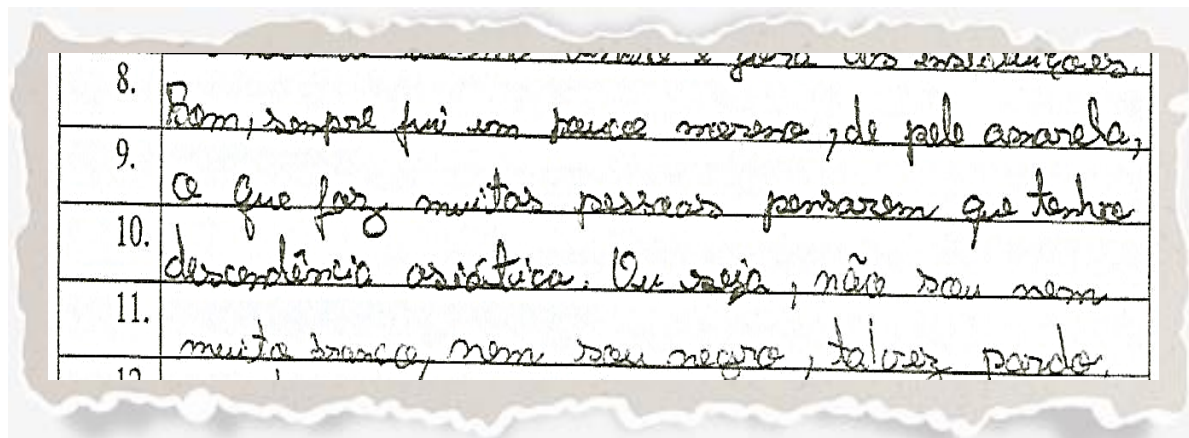 e para as instituições.
8.
Bom, sempre fui um pouco moreno, de pele amarela,
9.
o que faz muitas pessoas pensarem que tenho
10.
descendência asiática. Ou seja, não sou nem
11.
muito branco, nem sou negro, talvez pardo.
12